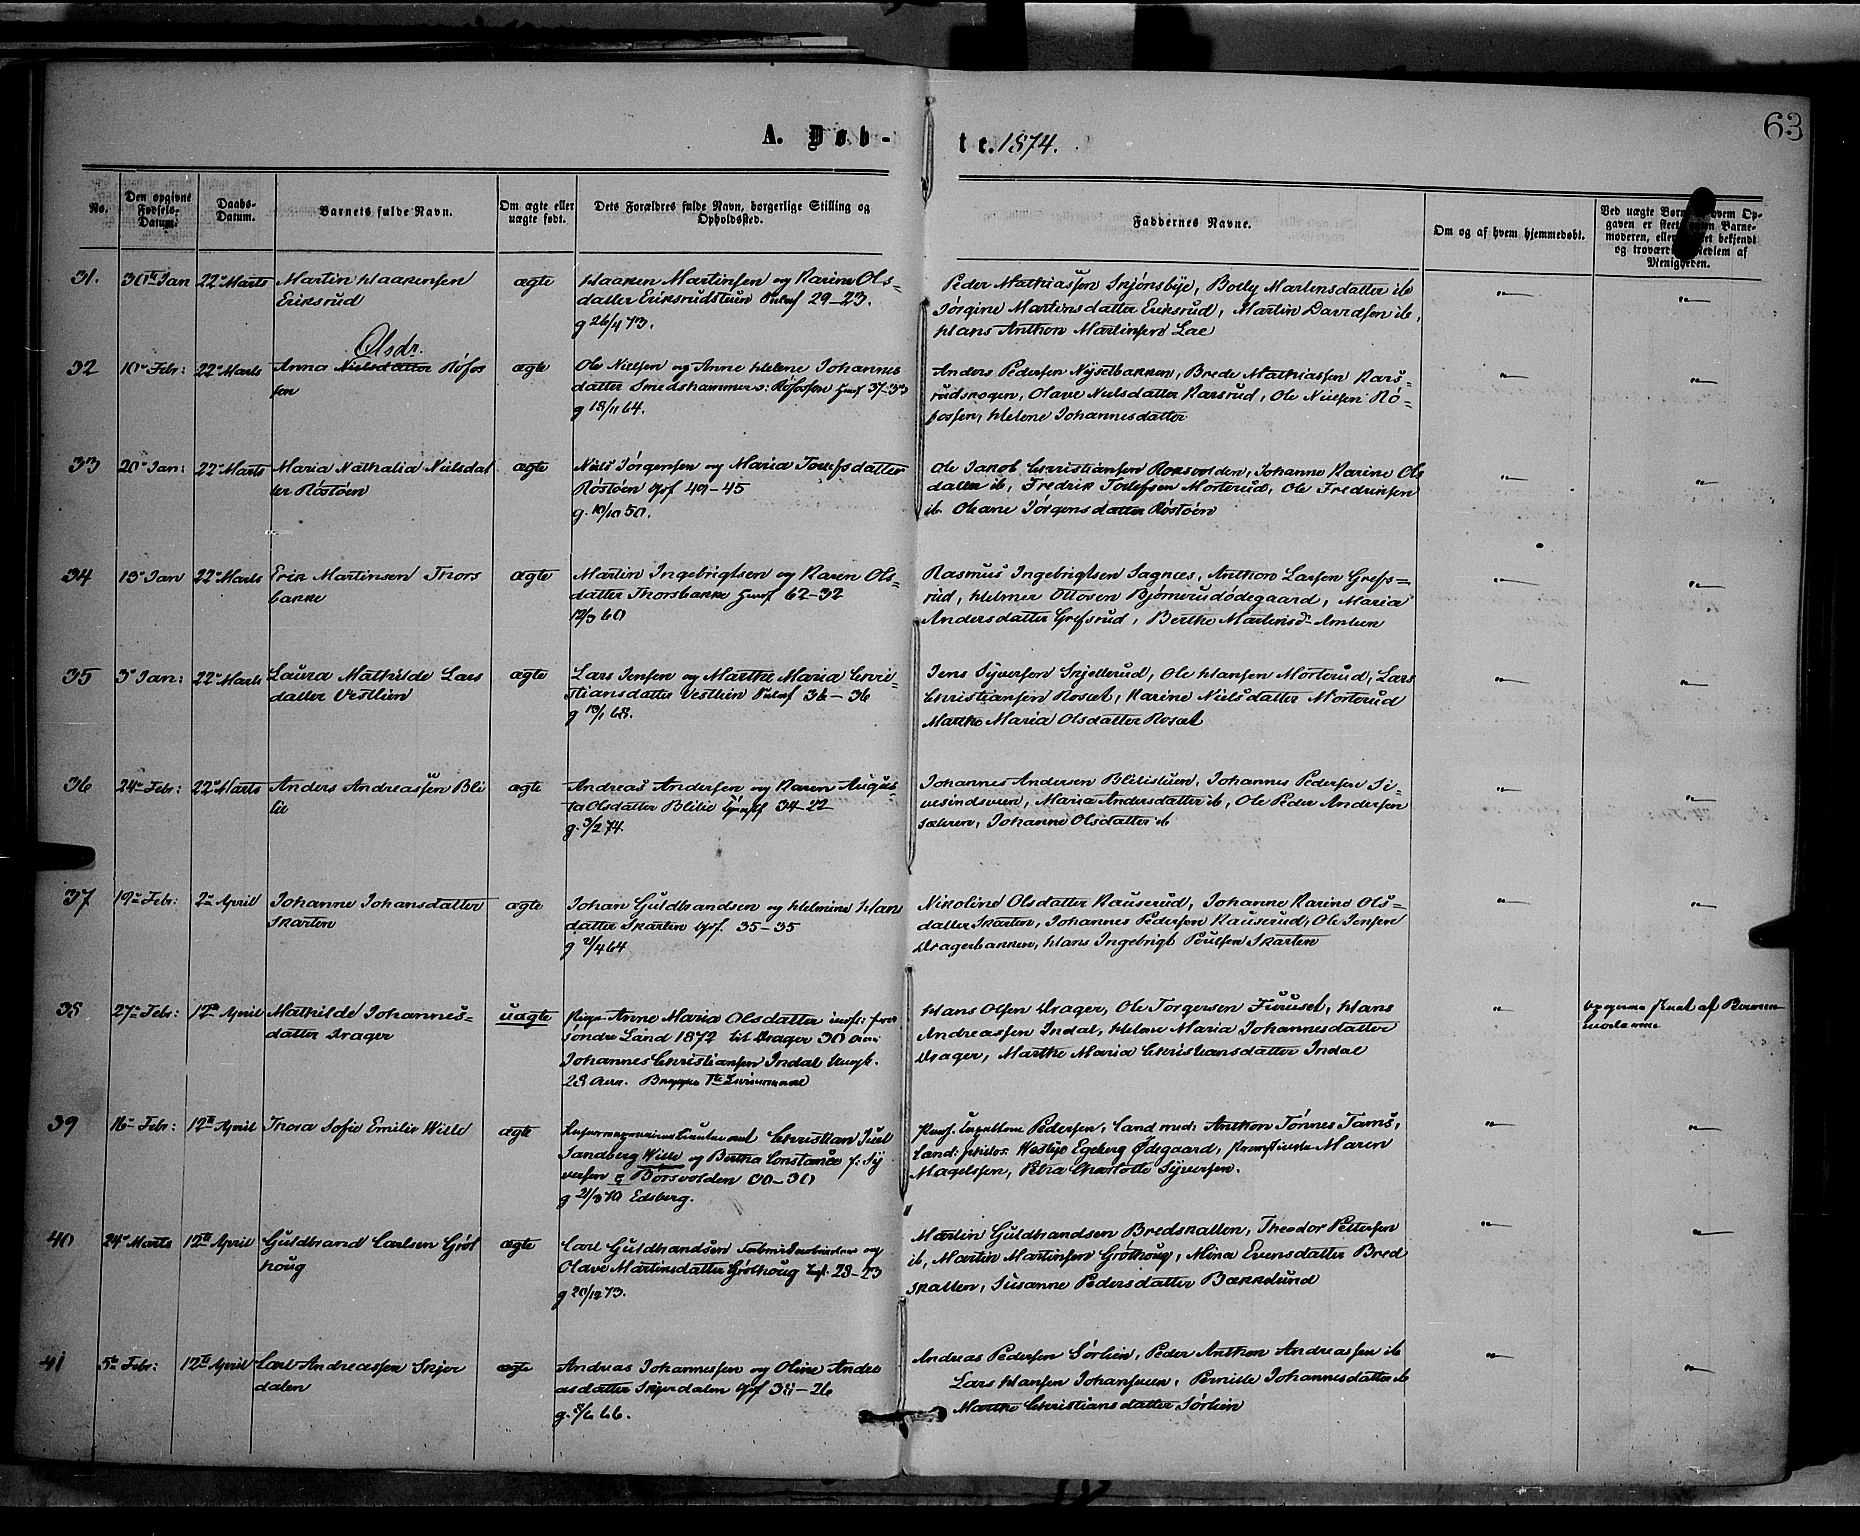 63
A. Døb-
te. 1874.
No.
Den opgivne
Fødsels-
Datum.
Daabs-
Datum.
Barnets fulde Navn.
Om ægte eller
uægte født.
Dets Forældres fulde Navn, borgerlige Stilling og
Opholdssted.
Faddernes Navne.
Om og af hvem hjemmedøbt.
Ved uægte hvem Op-
gaven er Barne-
moderen, bekjendt
og af
Menigheden.
31. 30te Jan 22de Marts Martin Haakensen
Eriksrud
ægte
Haaken Martinsen og Karine Ols-
datter Eriksrudstuen 29-23.
g 26/4 73.
Peder Mathiassen Skjønsbye, Boely Martensdatter ib
Jørgine Martinsdatter Eriksrud, Martin Davidsen ib,
Hans Anthon Martinsen Lae
Olsdr.
32 10de Febr: 22de Marts Anna Nielsdatter Røfos
sen
ægte
Ole Nielsen og Anne Helene Johannes
datter Smedshammer o: Røfossen 37-33
g 18/11 64.
Anders Pedersen Nyselbakken, Brede Mathiassen Kars-
rudskogen, Olave Nielsdatter Karsrud, Ole Nielsen Rø-
fossen, Helene Johannesdatter
33 20de Jan: 22de Marts Maria Nathalia Nielsdat
ter Røstøen
ægte
Niels Jørgensen og Maria Tolefsdatter
Røstøen Gbf 49-45
g. 10/10 50.
Ole Jakob Christiansen Roksvolden, Johanne Karine Ols
datter ib, Fredrik Tolefsen Morterud, Ole Fredriksen
ib Oleane Jørgensdatter Røstøen
34 13de Jan 22de Marts Erik Martinsen Thors
bakke
ægte
Martin Ingebrigtsen og Karen Ols-
datter Thorsbakke 62-32
12/3 60
Rasmus Ingebrigtsen Sagnæs, Anthon Larsen Grefs-
rud, Helmer Ottosen Bjørnerudødegaard, Maria
Andersdatter Grefsrud, Berthe Martinsdr
35 3de Jan: 22de Marts Laura Mathilde Lars
datter Vestlien
ægte
Lars Jensen og Marthe Maria Chri-
stiansdatter Vestlien 36-36
g 13/1 68.
Jens Syversen Skjellerud, Ole Hansen Morterud, Lars
Christiansen Roset, Karine Nielsdatter Morterud
Marthe Maria Olsdatter Roset
36 24de Febr: 22de Marts Anders Andreassen Bli
lie
ægte
Andreas Andersen og Karen Augus
ta Olsdatter Blilie 34-22
g. 3/2 74.
Johannes Andersen Blilistuen, Johannes Pedersen Si-
Maria Andersdatter ib, Ole Peder Andersen
Johanne Olsdatter ib
37 19de Febr: 2den April Johanne Johansdatter
Skarten
ægte
Johan Guldbrandsen og Helmine Hans
datter Skarten Gbf. 35-35
g 2/4 64
Nikoline Olsdatter Kauserud, Johanne Karine Ols-
datter Skarten, Johannes Pedersen Kauserud, Ole Jensen
Dragerbakken, Hans Ingebrigt Poulsen Skarten
38 27de Febr: 12te April Mathilde Johannes-
datter Drager
uægte
Pige Anne Maria Olsdatter indfl: fra
Søndre Land 1872 til Drager 30 Aar
Johannes Christiansen Indal Ungk.
28 Aar. Begges 1ste
Hans Olsen Drager, Ole Torgersen Furuset, Hans
Andreassen Indal, Helene Maria Johannesdatter
Drager, Marthe Maria Christiansdatter Indal
Opgaven skeet af Barne
moderen
39 16de Febr: 12te April Thora Sofie Emilie Wille
ægte
Christian Juel
Sandberg Wille og Bertha Constance f: Sy
versen Børsvolden 30-30
g 21/3 70 Edsberg.
Pedersen, Cand med: Anthon Tønnes Tams,
Cand: philos: Westye Egeberg Ødegaard, Maren
Magelssen, Petra Charlotte Syversen.
40 24de Marts 12te April Guldbrand Carlsen Grøt
houg
ægte
Carl Guldbrandsen og
Olave Martinsdatter Grøthoug 28-23
g 20/12 73.
Martin Guldbrandsen Bredskallen, Theodor Pettersen
ib, Martin Martinsen Grøthoug, Mina Evensdatter Bred
skallen, Susanne Pedersdatter Bækkelund
41 5te Febr: 12te April Carl Andreassen Skjer
dalen
ægte
Andreas Johannessen og Oline Andre
asdatter Skjerdalen Gbf 38-26
g. 8/6 66.
Andreas Pedersen Sørlien, Peder Anthon Andreassen ib
Lars Hansen Pernille Johannesdatter ib
Marthe Christiansdatter Sørlien